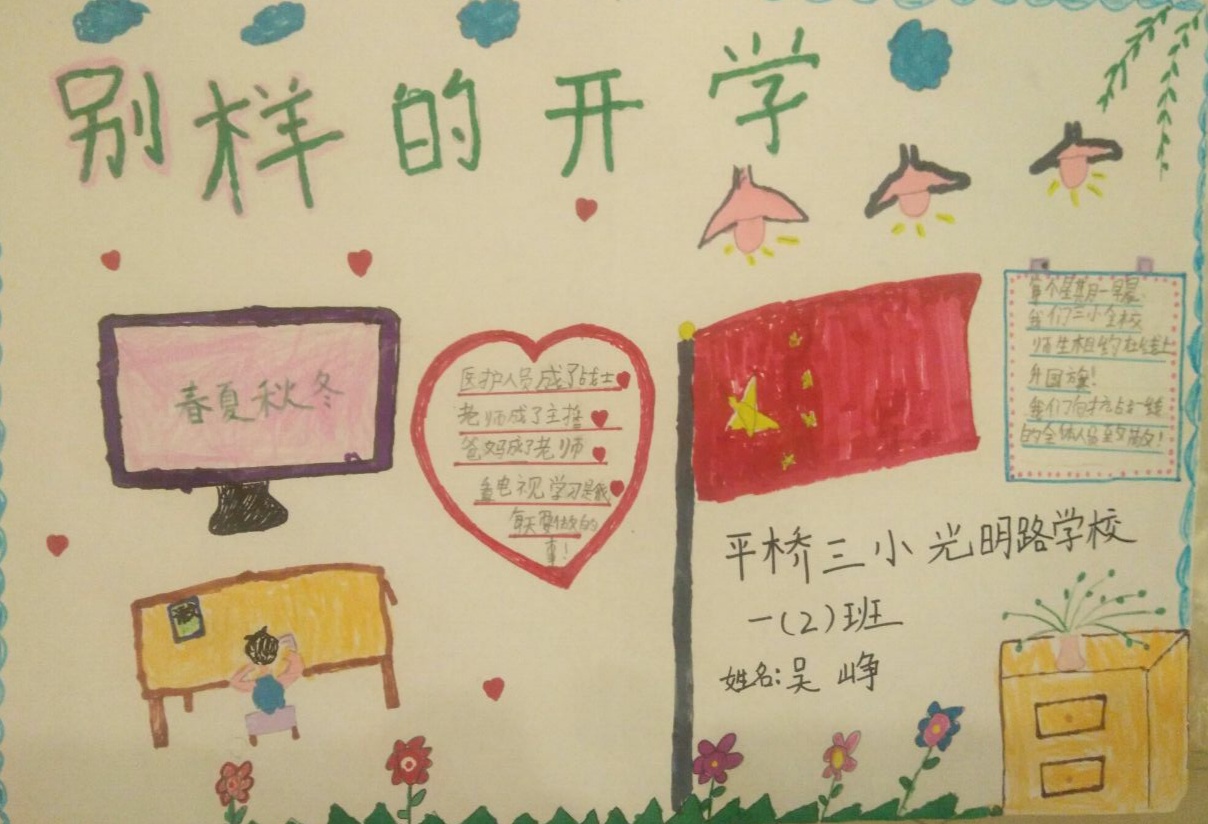 别样的开学
春夏秋冬
医护人员成了战士
老师成了主播
爸妈成了老师
看电视学习是我
每天要做的
事!
每个星期一早晨
我们三小全校
师生相约在线上
升国旗!
我们向抗击一线
的全体人员致敬!
平桥三小光明路学校
一(2)班
姓名:吴峥